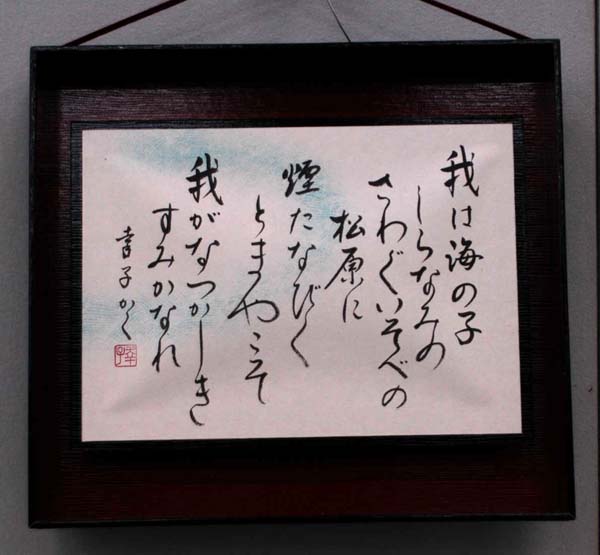 我は海の子
しらなみの
さわぐいそべの
松原に
煙たなびく
とまやこそ
我がなつかしき
すみかなれ
幸子かく